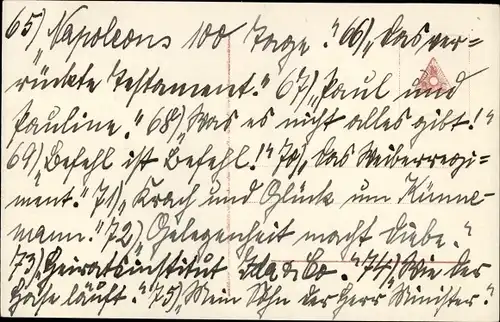 65) „Napoleons 100 Tage." 66) „Das ver-
rückte Testament." 67) „Paul und
Pauline." 68) „Was es nicht alles gibt!"
69) „Befehl ist Befehl!" 70) „Das Weiberregi-
ment." 71) „Krach und Glück um Künne-
mann." 72) „Gelegenheit macht Diebe."
73) „Heiratsinstitut Ida & Co." 74) „Wie der
Hase läuft." 75) „Mein Sohn der Herr Minister."